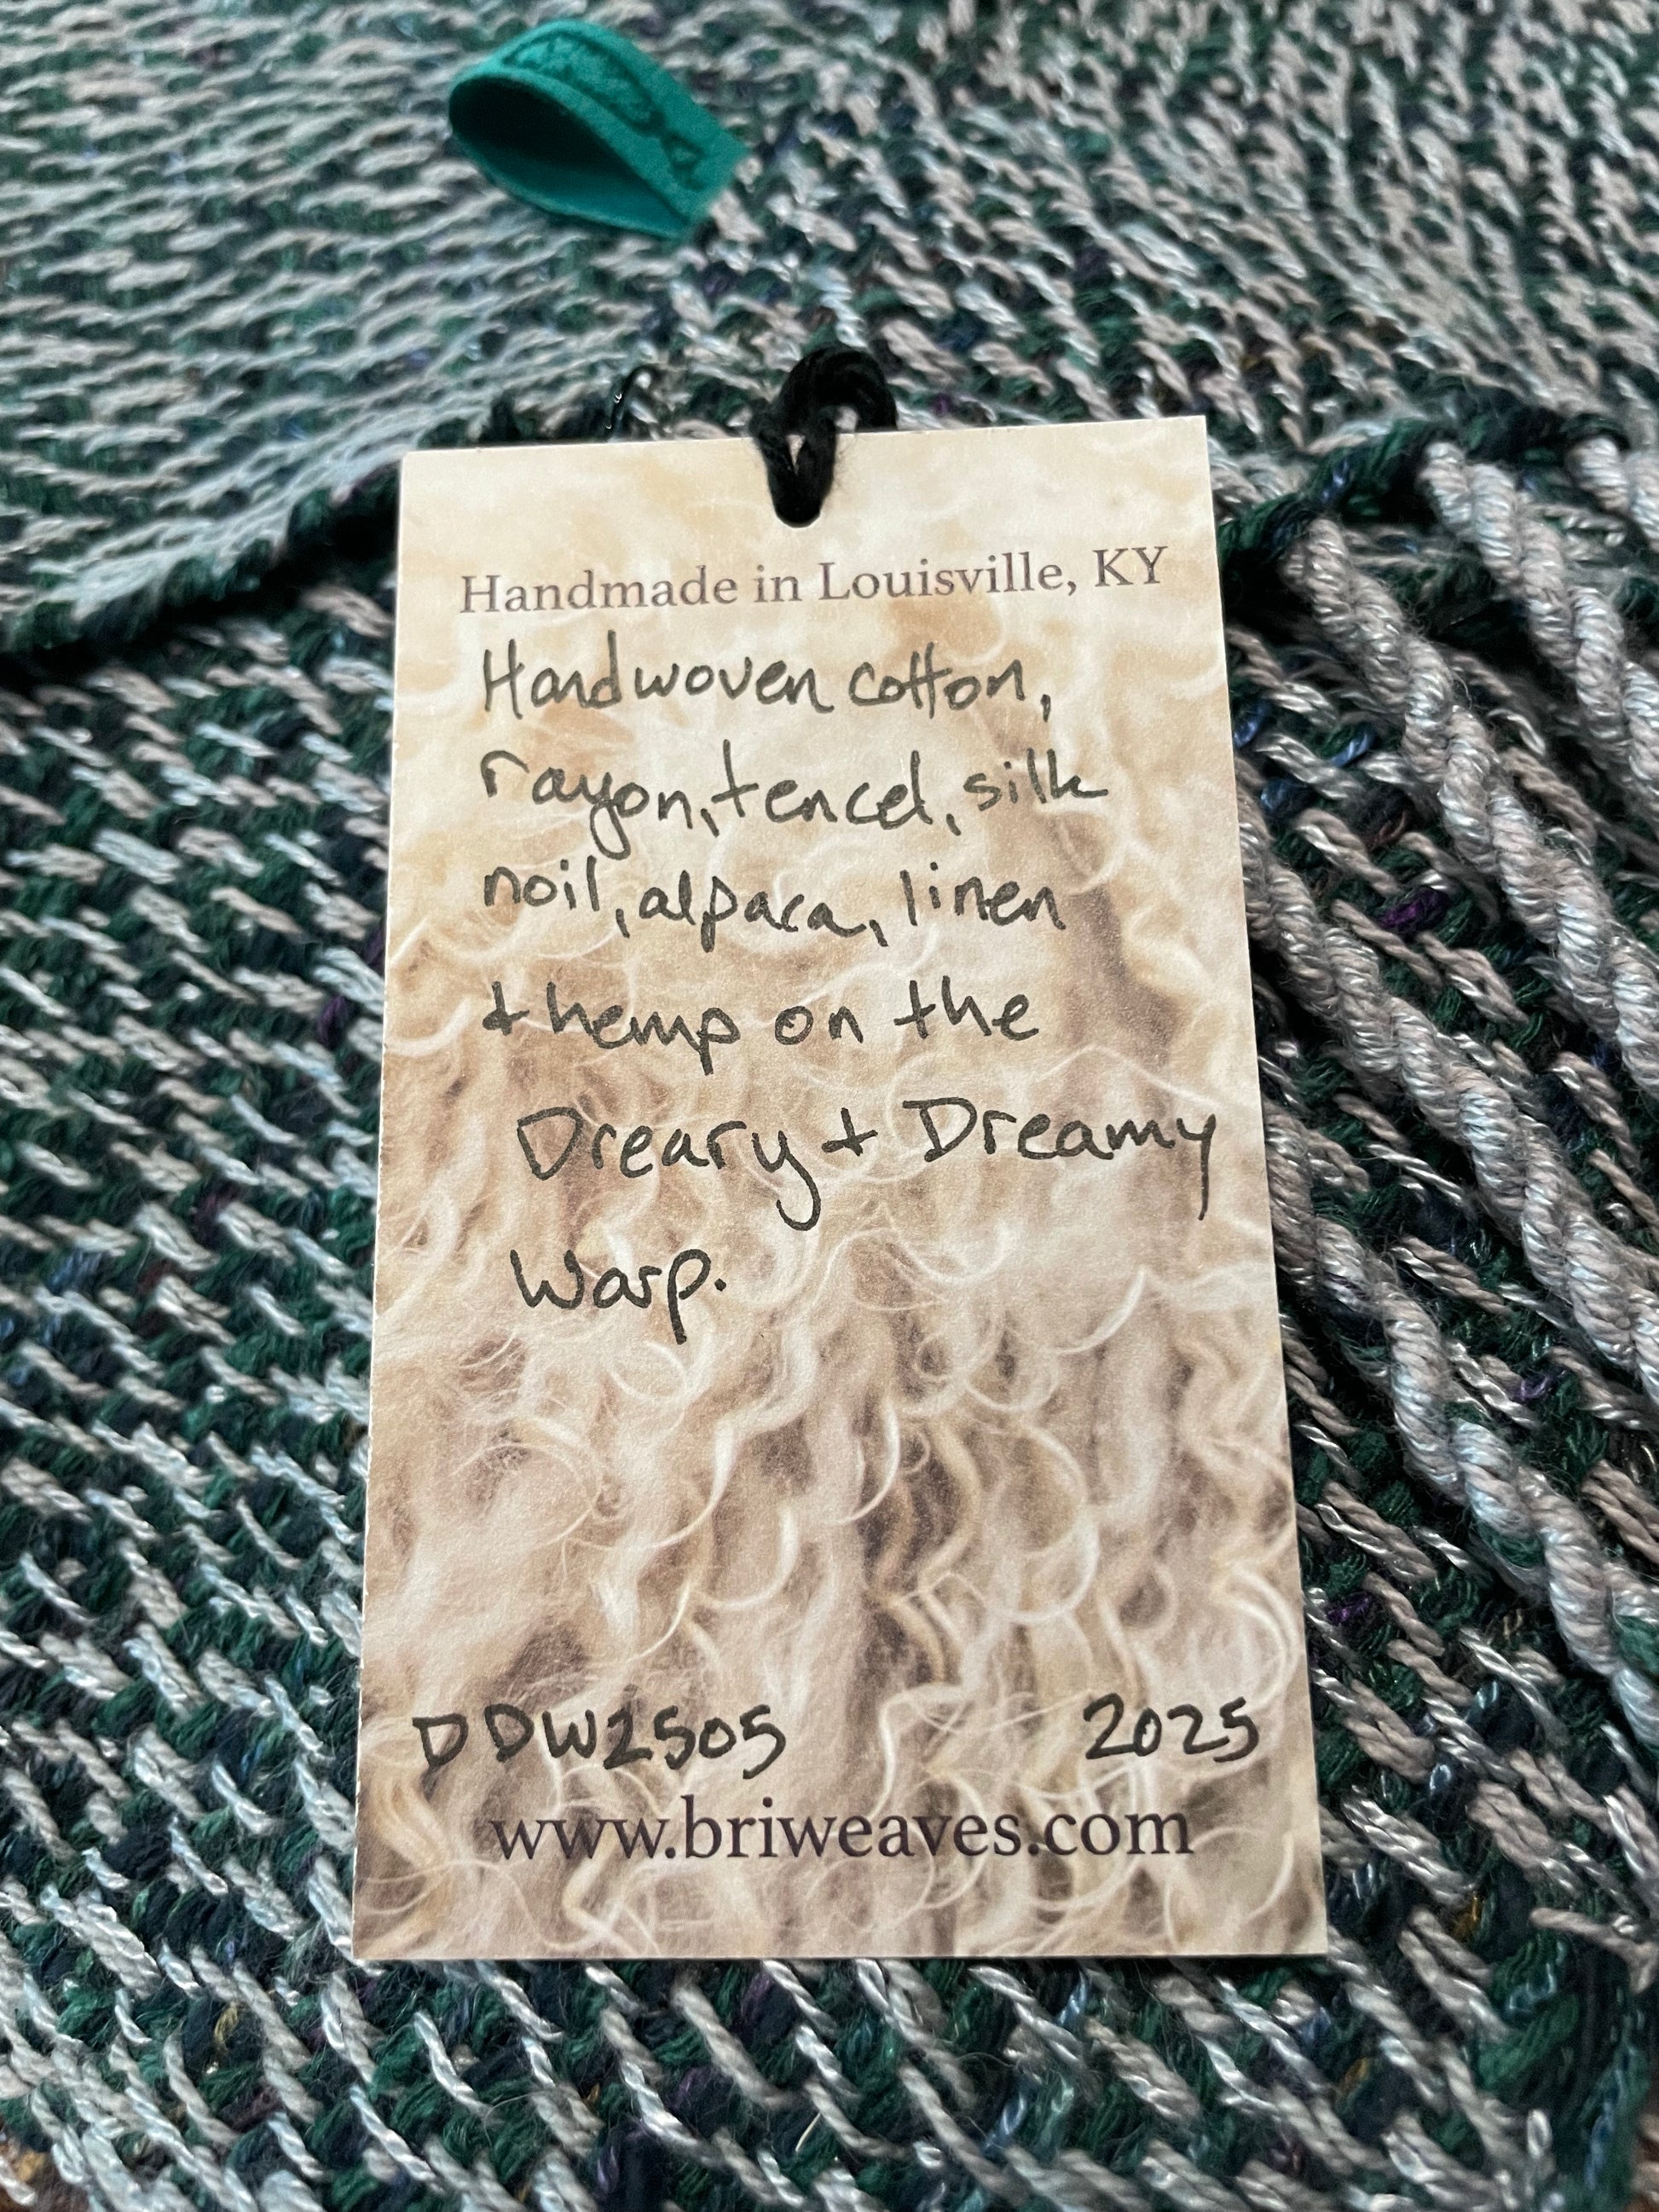 Handmade in Louisville, KY
Handwoven cotton,
rayon, tencel, silk
noil, alpaca, linen
+ hemp on the
Dreary + Dreamy
Warp.
DDW2505 2025
www.briweaves.com